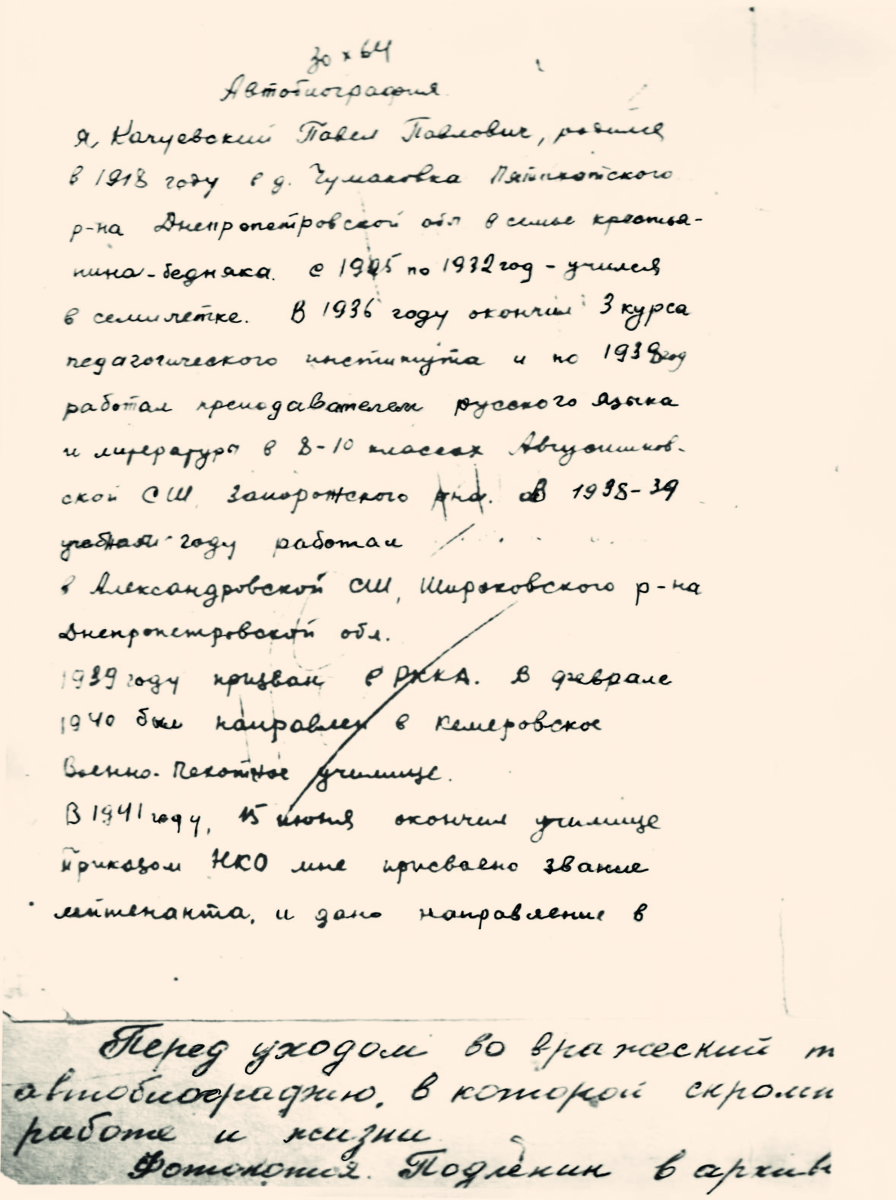 30 x 64
Автобиография
Я, Качуевский Павел Павлович, родился
в 1918 году в д. Чумаковка Пятихатского
р-на Днепропетровской обл в семье крестья-
нина-бедняка. С 1925 по 1932 год - учился
в семилетке. В 1936 году окончил 3 курса
педагогического института и по 1938 год
работал преподавателем русского языка
и литературы в 8-10 классах Августинов-
ской СШ Запорожского р-на. В 1938-39
учебном году работал
в Александровской СШ, Широковского р-на
Днепропетровской обл.
1939 году призван в РККА. В феврале
1940 был направлен в Кемеровское
Военно-Пехотное училище.
В 1941 году, 15 июня окончил училище
Приказом НКО мне присвоено звание
лейтенанта, и дано направление в
Перед уходом во вражеский т
автобиографию, в которой скромн
работе и жизни
Фотокопия. Подленик в архив